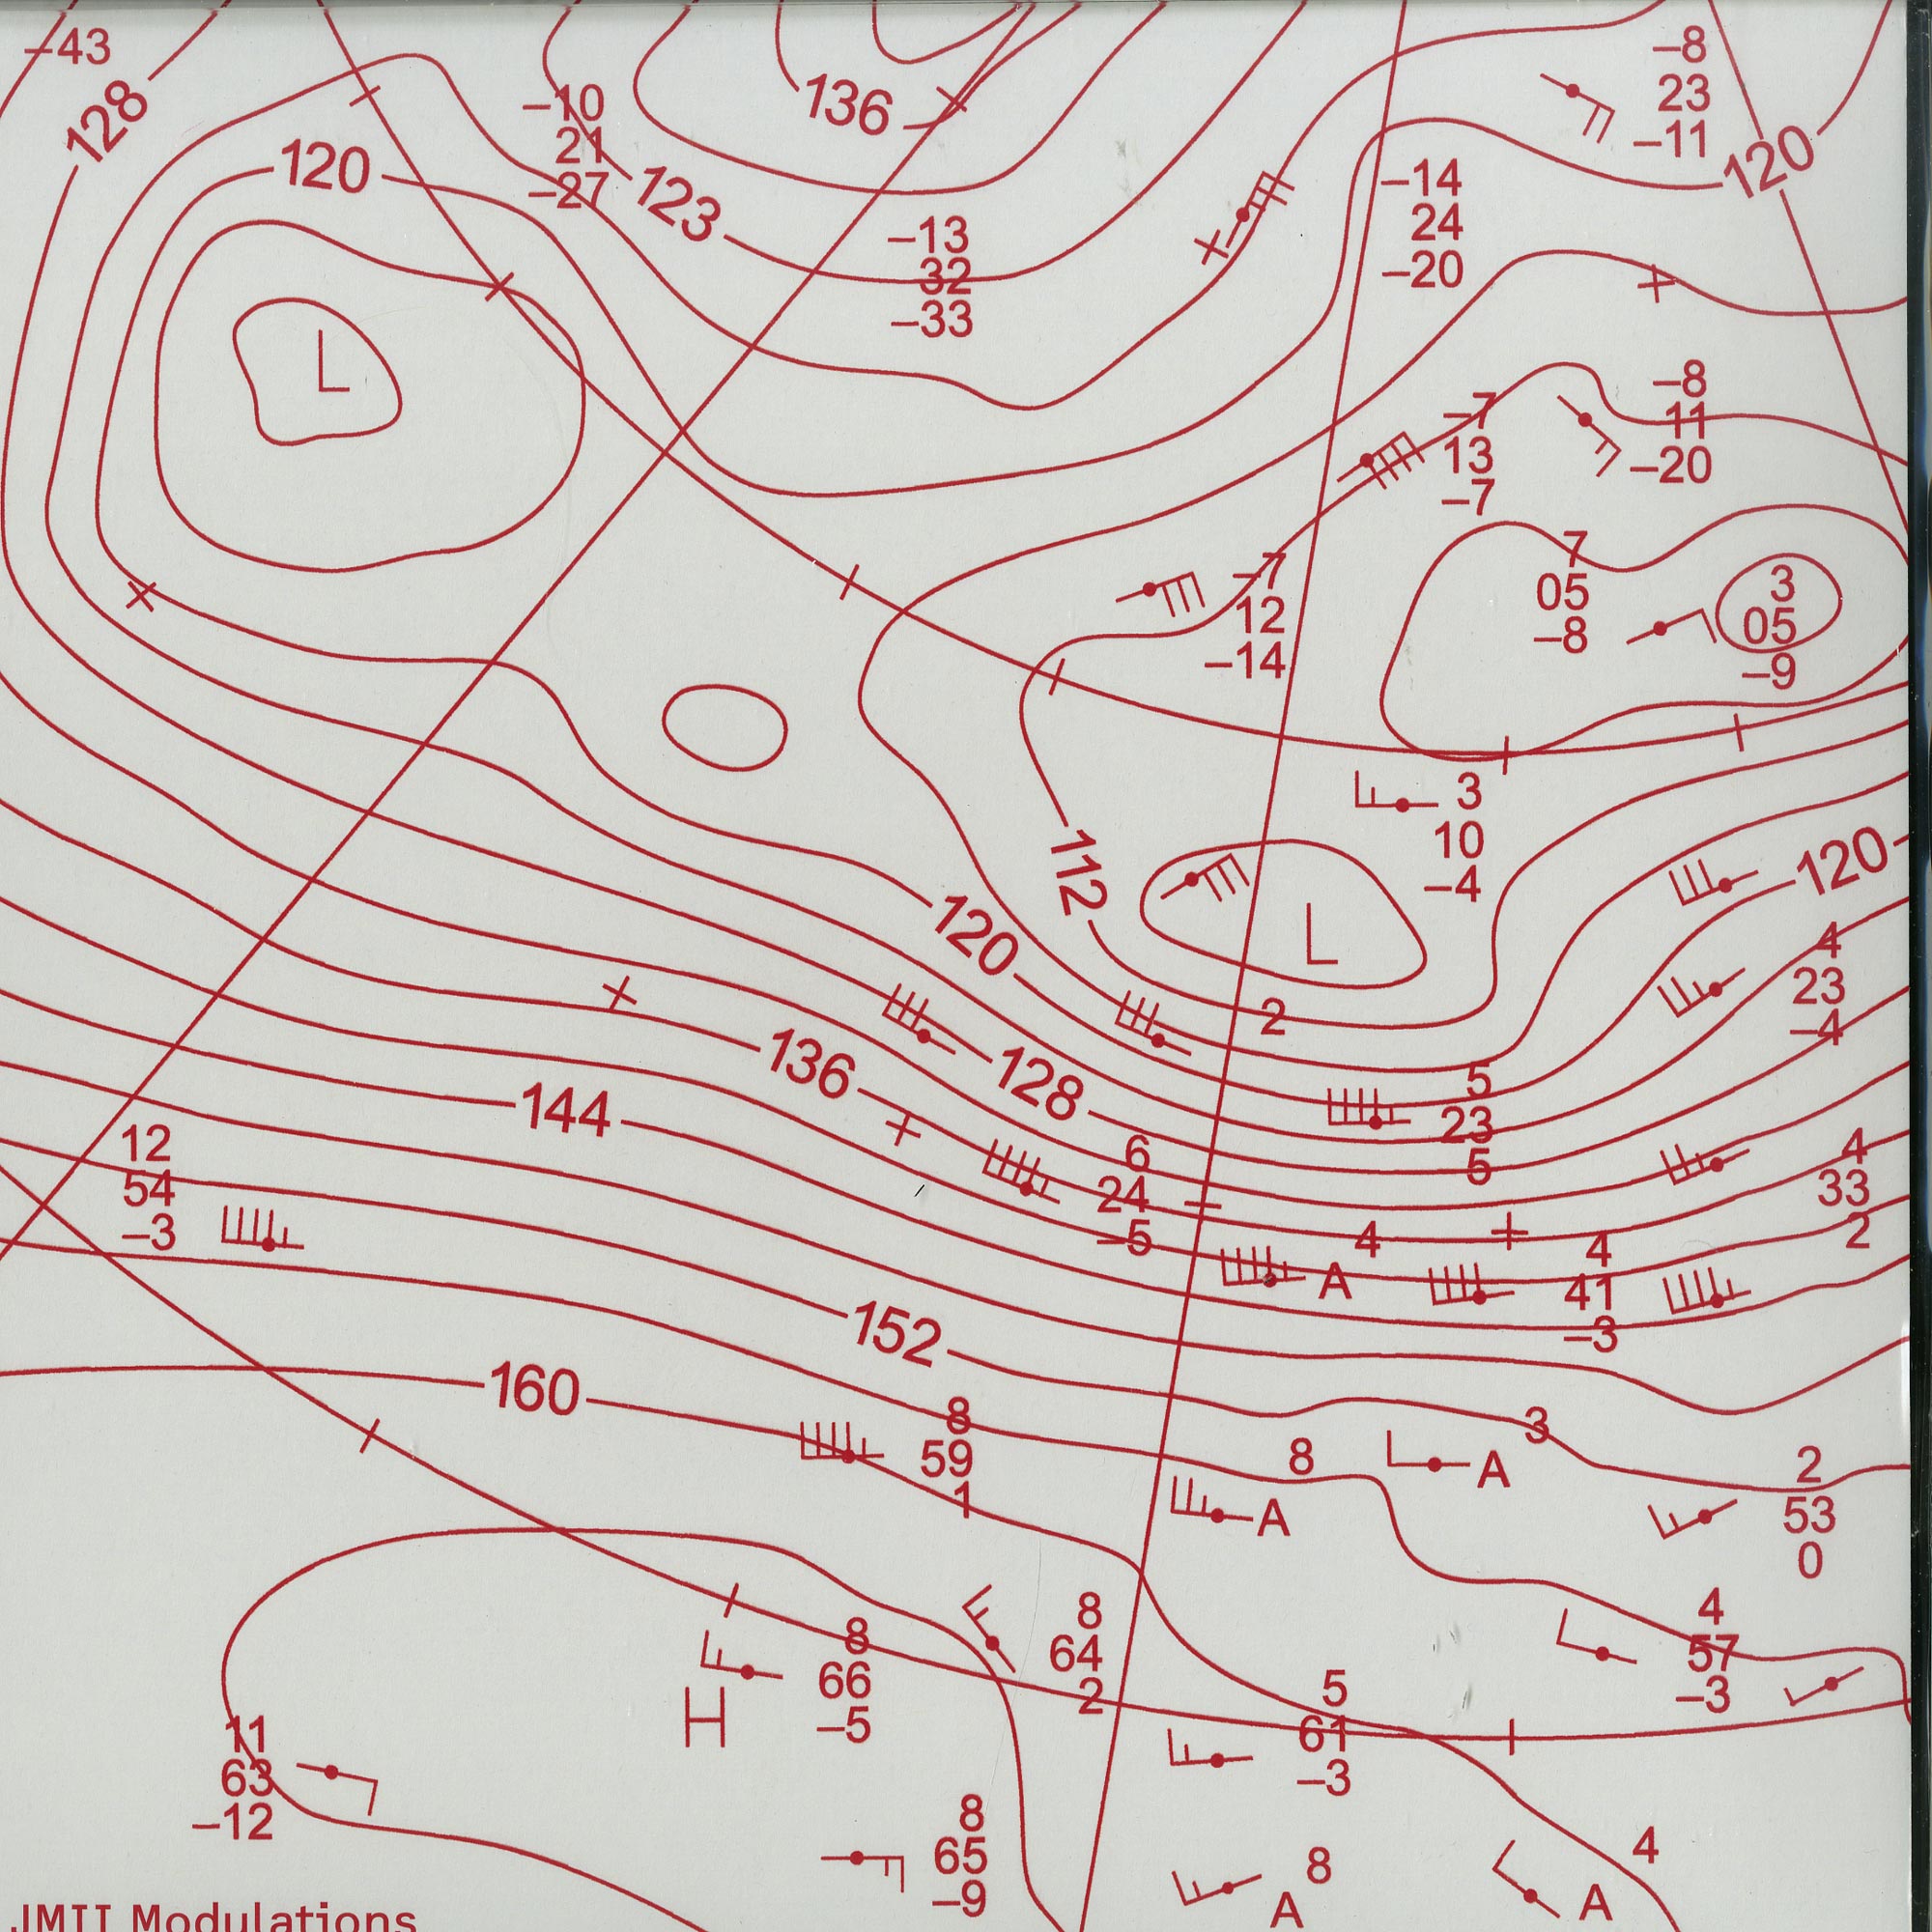 –43
128
–10
21
–27
136
–8
23
–11
120
120
123
–13
32
–33
–14
24
–20
L
–7
13
–7
–8
11
–20
–7
12
–14
7
05
–8
3
05
–9
3
10
–4
112
120
L
120
2
4
23
–4
136
128
144
5
23
5
12
54
–3
6
24
–5
4
A
4
41
–3
4
33
2
152
160
8
59
1
8
A
3
A
2
53
0
8
64
2
4
57
–3
H
8
66
–5
5
61
–3
11
63
–12
8
65
–9
8
A
4
A
JMII Modulations